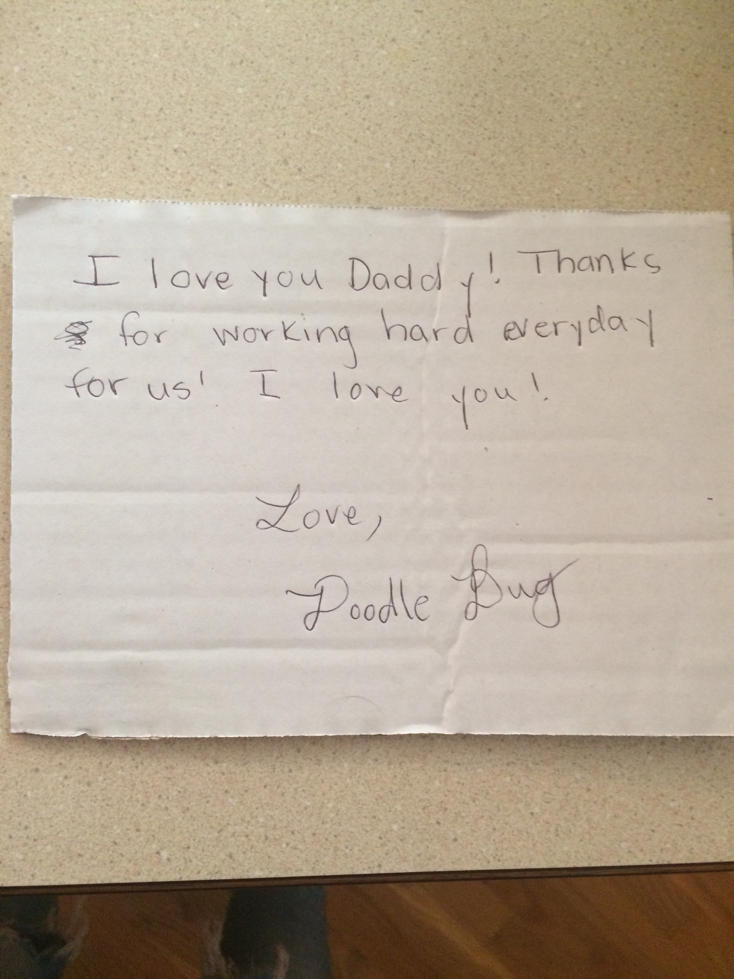 I love you Daddy! Thanks
for working hard everyday
for us! I love you!
Love,
Doodle Bug